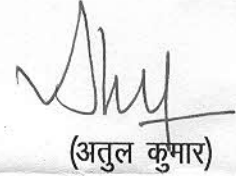 (अतुल कुमार)